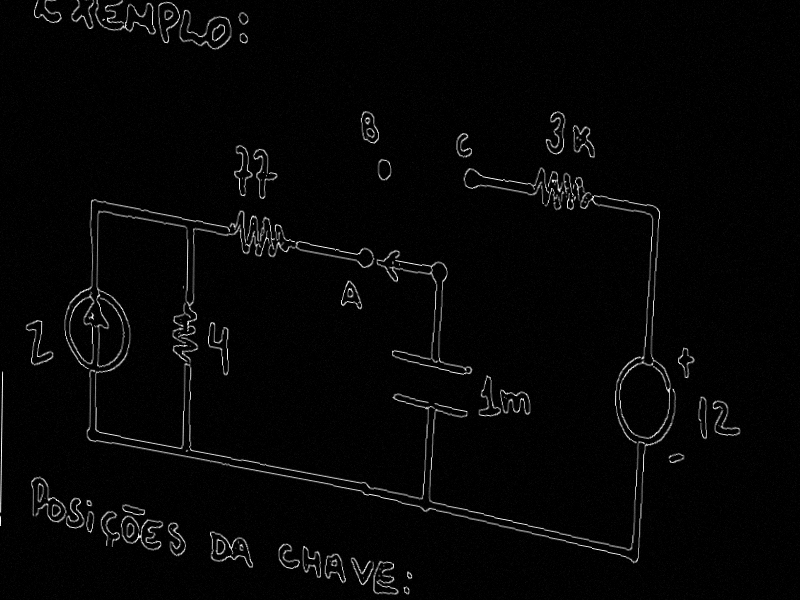 EXEMPLO:
B
C
3K
77
A
2
4
1m
+
12
-
POSIÇÕES DA CHAVE: